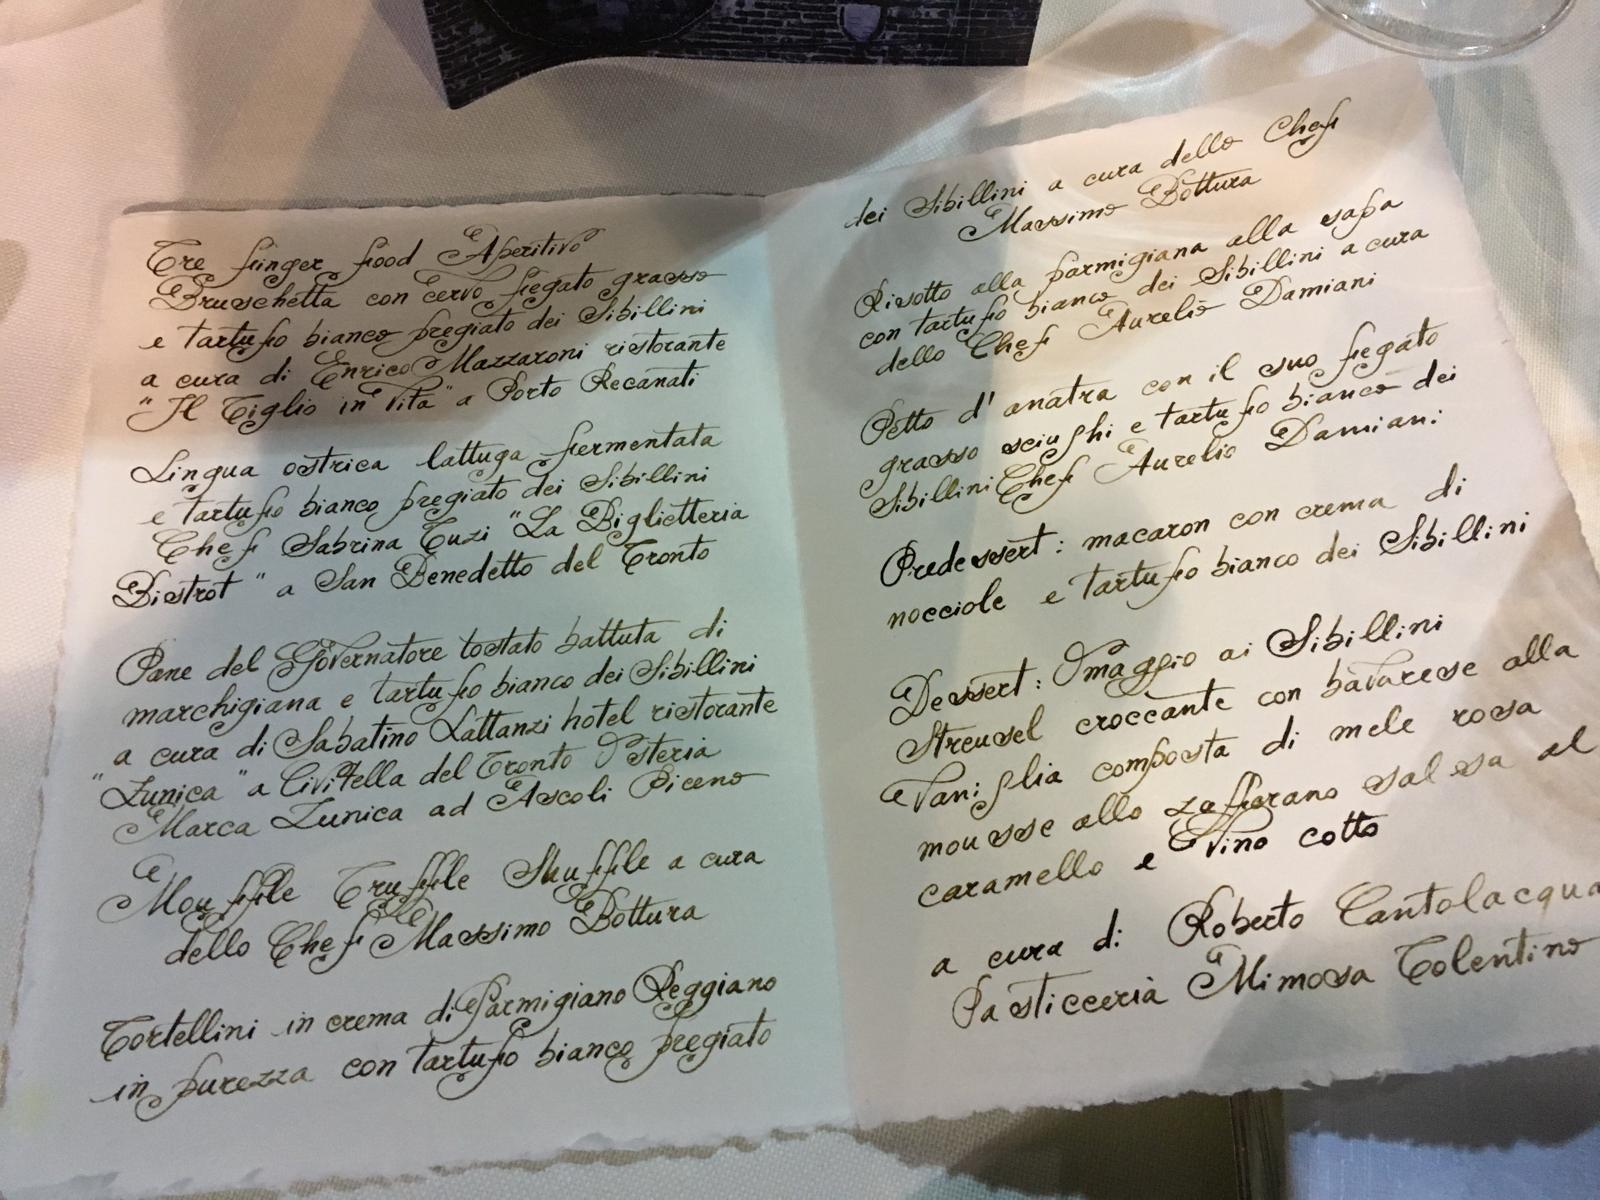 Tre finger food Aperitivo
Bruschetta con cervo fegato grasso
e tartufo bianco pregiato dei Sibillini
a cura di Enrico Mazzaroni ristorante
"Il Tiglio in Vita" a Porto Recanati
Lingua ostrica lattuga fermentata
e tartufo bianco pregiato dei Sibillini
Chef Sabrina Tuzi "La Biglietteria
Bistrot" a San Benedetto del Tronto
Pane del Governatore tostato battuta di
marchigiana e tartufo bianco dei Sibillini
a cura di Sabatino Lattanzi hotel ristorante
"Zunica" a Civitella del Tronto Osteria
Marca Zunica ad Ascoli Piceno
Mouffle Truffle Shuffle a cura
dello Chef Massimo Bottura
Tortellini in crema di Parmigiano Reggiano
in purezza con tartufo bianco pregiato
dei Sibillini a cura dello Chef
Massimo Bottura
Risotto alla parmigiana alla sapa
con tartufo bianco dei Sibillini a cura
dello Chef Aurelio Damiani
Petto d'anatra con il suo fegato
grasso sciughi e tartufo bianco dei
Sibillini Chef Aurelio Damiani
Predessert: macaron con crema di
nocciole e tartufo bianco dei Sibillini
Dessert: Omaggio ai Sibillini
Streusel croccante con bavarese alla
Vaniglia composta di mele rosa
mousse allo zafferano salsa al
caramello e Vino cotto
a cura di Roberto Cantolacqua
Pasticceria Mimosa Tolentino